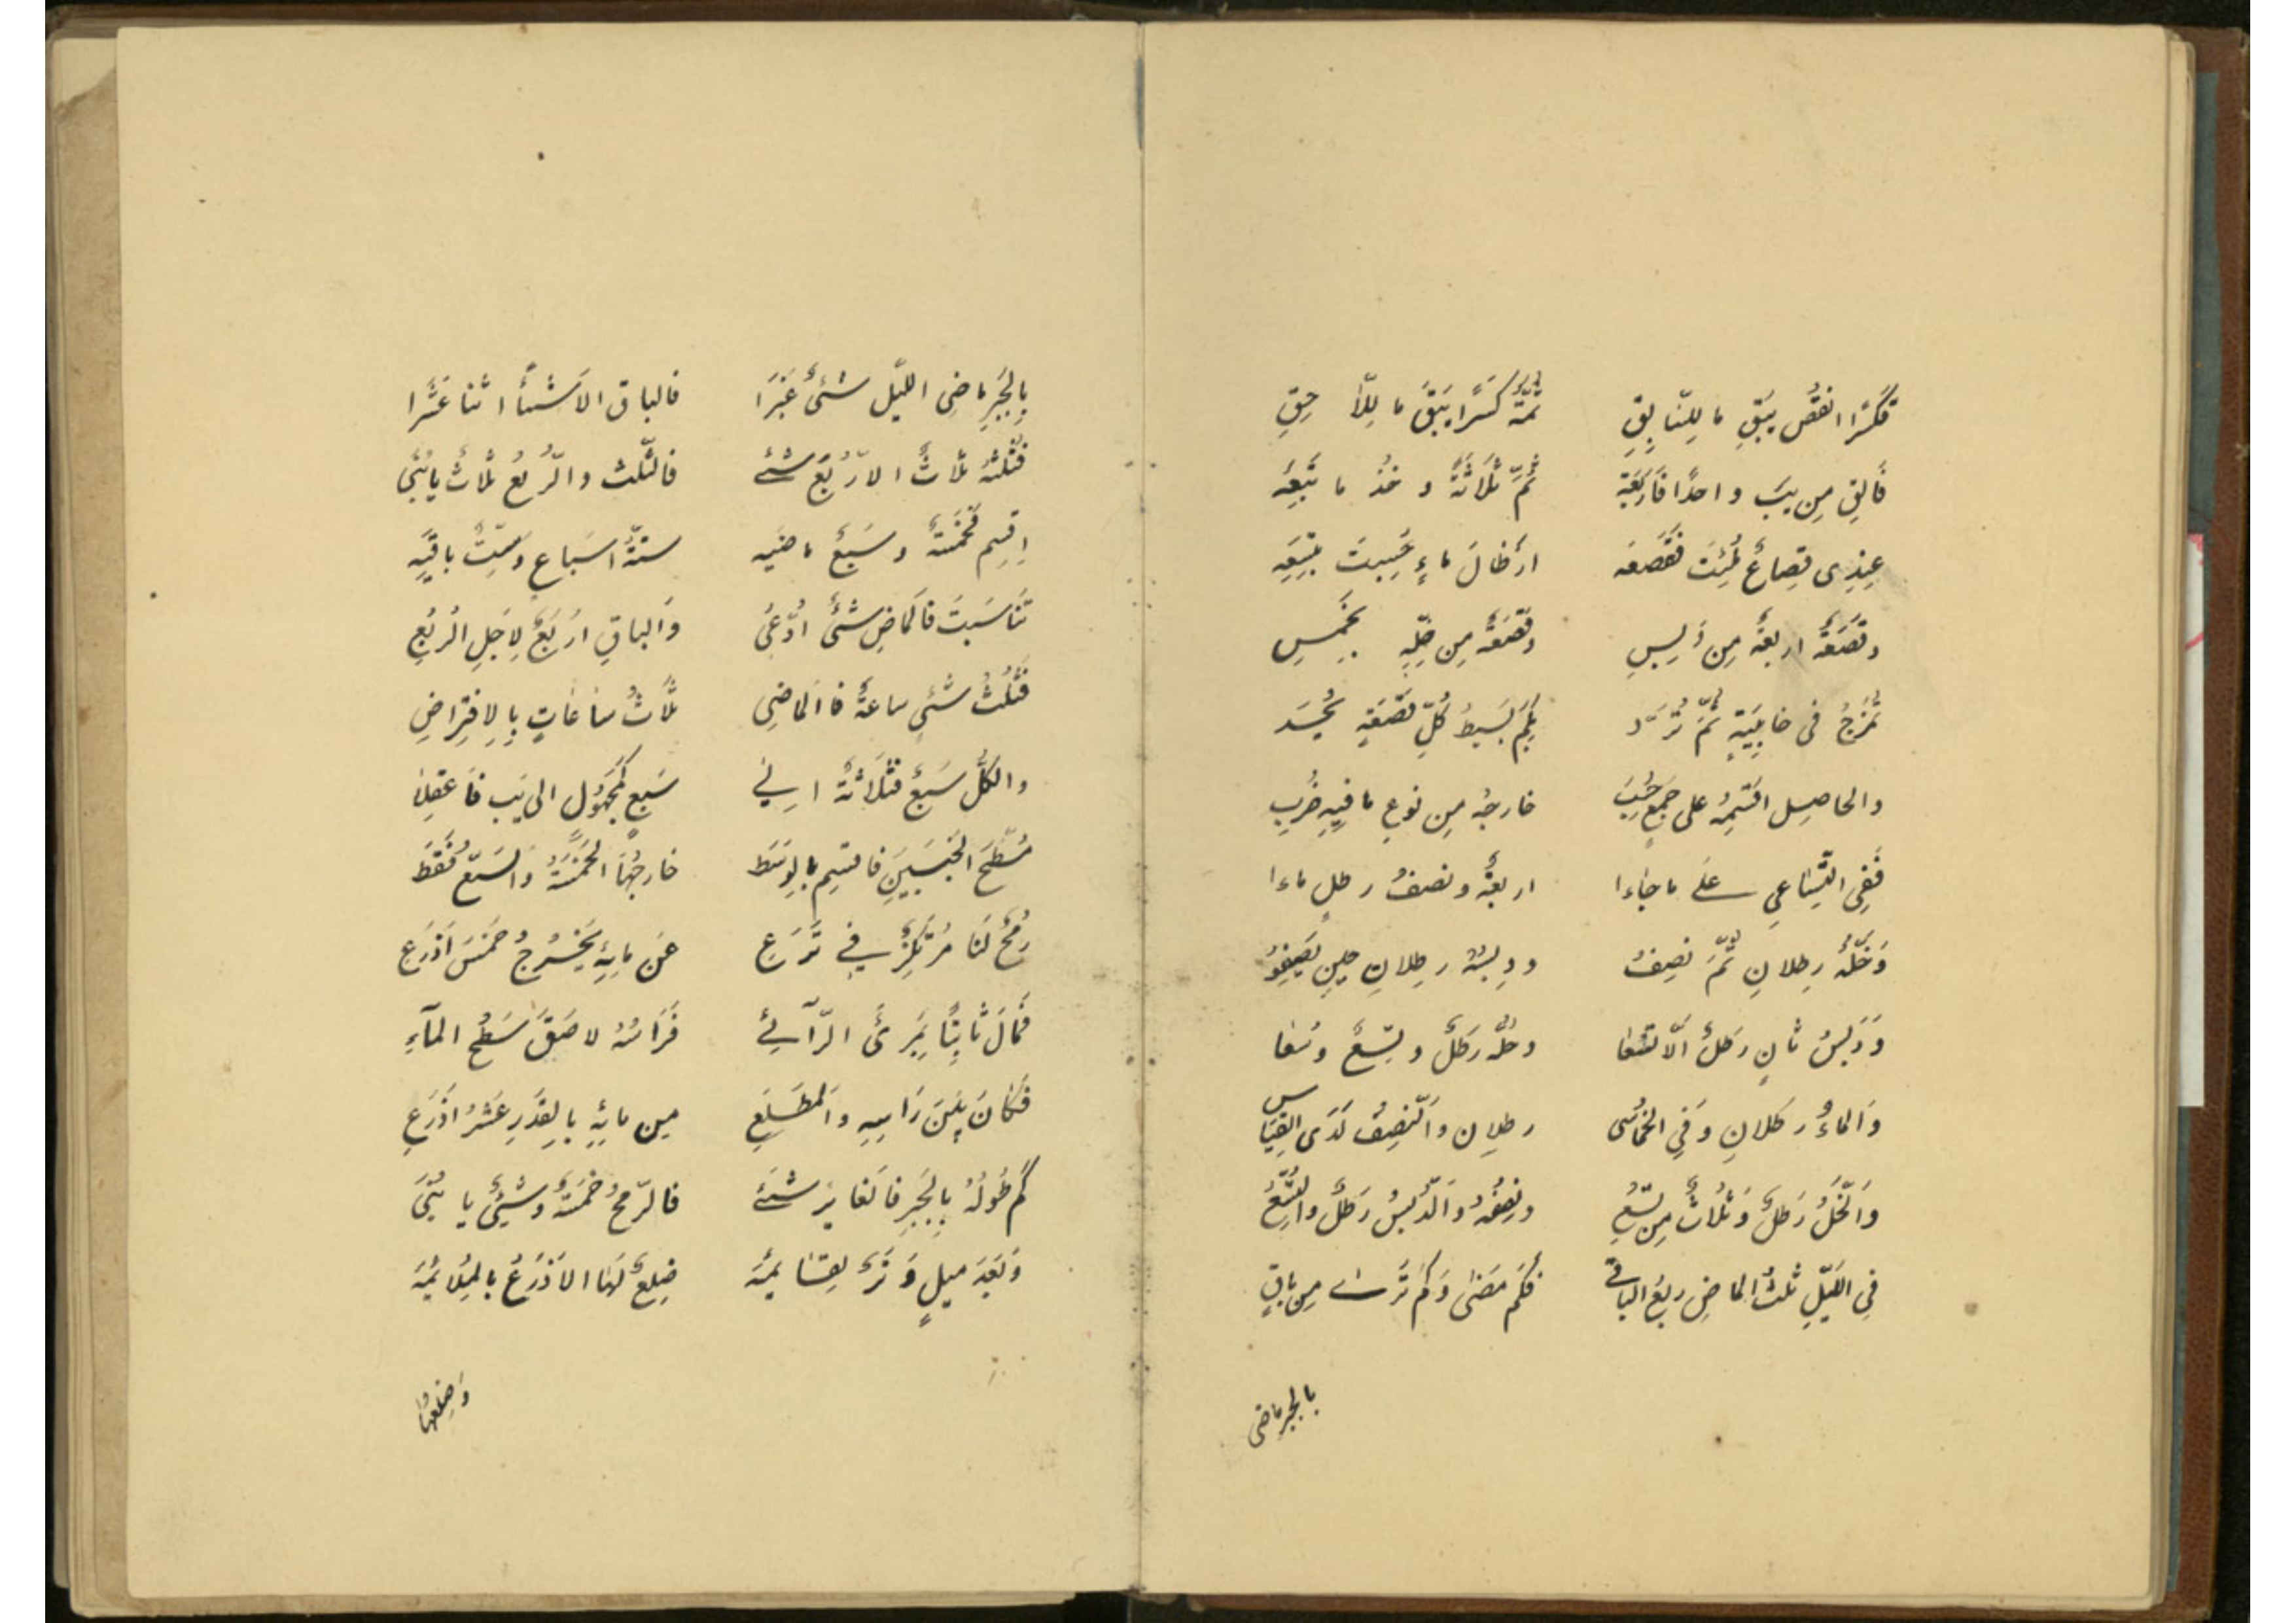 فكسرا انقص يبق ما للنا بق ثمة كسرا يبق ما للأ حق
فالق من يب واحدا فاربعة ثم ثلاثة وخذ ما تبعه
عندى قصاع لمئت فقصعه ارطال ماء حسبت بتسعه
وقصعة اربعة من دبس وقصعة من خله بخمس
تمزج فى خابية ثم ترد بكم بسيط كل قصعة يحد
والحاصل اقسمه على جمع حسب خارجه من نوع ما فيه ضرب
ففى التساعى على ما جاءا اربعة ونصف رطل ماءا
وخله رطلان ثم نصف ودبسه رطلان حين
ودبس ثان رطل الا تسعا وخله رطل وتسع
والماء رطلان وفي الخماسى رطلان والنصف لدى القياس
والخل رطل وثلاث من تسع ونصفه والدبس رطل والتسع
في الليل ثلث الماض ربع الباقي فكم مضى وكم ترى من باق
بالجبر ماضى
بالجبر ماضى الليل شئ غبرا فالباق الا شيئا اثنا عشرا
فثلثه ثلاث الاربع شئ فالثلث والربع ثلاث يا بني
اقسم فخمسة وسبع ماضيه ستة اسباع وست باقيه
تناسبت فالماض شئ ادعى والباق اربع لاجل الربع
فثلث شئ ساعة فالماضى ثلاث ساعات بالافتراض
والكل سبع فثلاثة الى سبع كمجهول الى يب فاعقلا
مسطح الجنبين فاقسم بالوسط خارجها الخمسة والسبع فقط
رمح لنا مرتكز في ترع عن مائه يخرج خمس اذرع
فمال ثابتا بمرئى الرآئي فراسه لاصق سطح المآء
فكان بين راسه والمطلع من مائه بالقدر عشر اذرع
كم طوله بالجبر فالغا بر شئ فالرمح خمسة وشئ يا بنى
وبعد ميل ضلع لها الاذرع بالملائمه
وضلعها